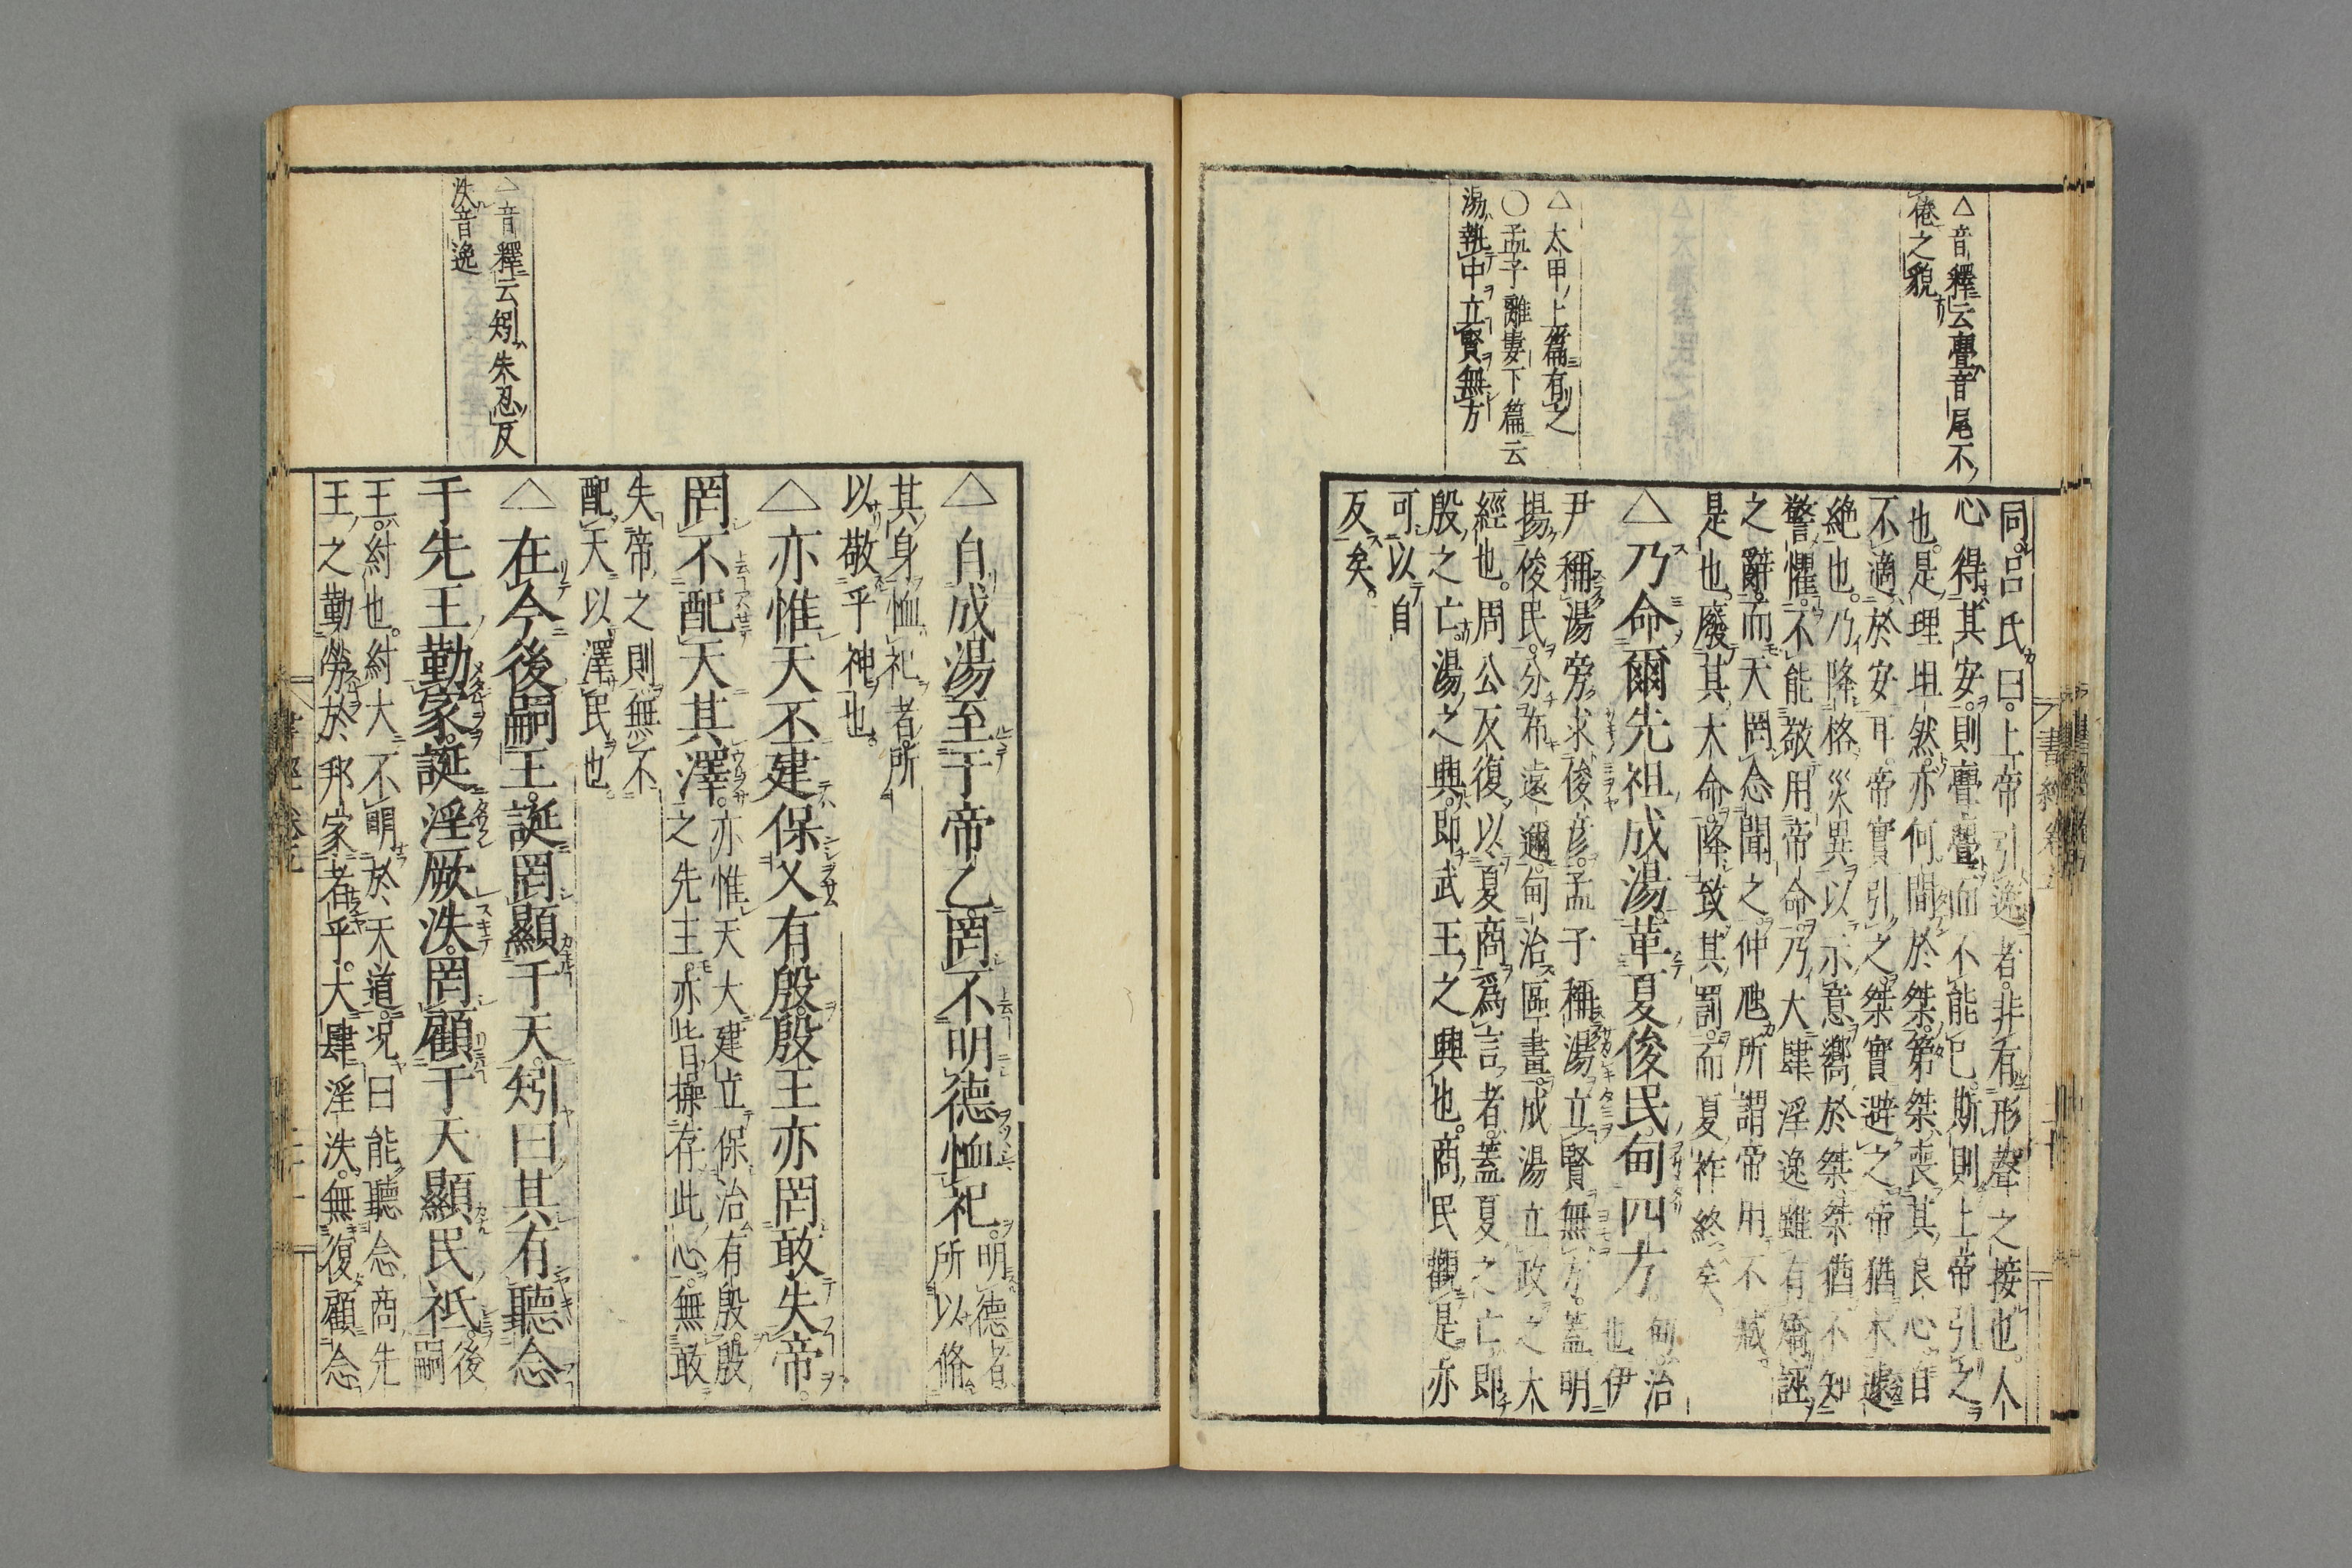 △音釋云亹音尾不
倦之貌
△太甲上篇有之
○孟子離婁下篇云
湯執中立賢無方
同。呂氏曰。上帝引逸者。非有形聲之接也。人
心得其安。則亹亹而不能已。斯則上帝引之
也。是理坦然。亦何間於桀。第桀喪其良心。自
不適於安耳。帝實引之。桀實避之。帝猶不遽
絶也。乃降格災異以示意嚮於桀。桀猶不知
警懼。不能敬用帝命。乃大肆淫逸。雖有矯誣
之辭。而天罔念聞之。仲虺所謂帝用不臧。
是也。廢其大命。降致其罰。而夏祚終矣。
△乃命爾先祖成湯革夏俊民甸四方。甸治
也伊
尹稱湯旁求俊彦。孟子稱湯立賢無方。蓋明
揚俊民。分布遠邇。甸治區畫。成湯立政之大
經也。周公反復以夏商爲言者。蓋夏之亡。即
殷之亡。湯之興。即武王之興也。商民觀是亦
可以自
反矣。
△音釋云矧朱忍反
泆音逸
△自成湯至于帝乙罔不明德恤祀。明德者
所以脩
其身恤祀者。所
以敬乎神也。
△亦惟天丕建保乂有殷。殷王亦罔敢失帝。
罔不配天其澤。亦惟天大建立保治有殷。殷
之先王。亦皆操存此心。無敢
失帝之則。無不
配天以澤民也。
△在今後嗣王。誕罔顯于天。矧曰其有聽念
于先王勤家。誕淫厥泆。罔顧于天顯民祗。後
嗣
王。紂也。紂大不明於天道。况曰能聽念商先
王之勤勞於邦家者乎。大肆淫泆。無復顧念